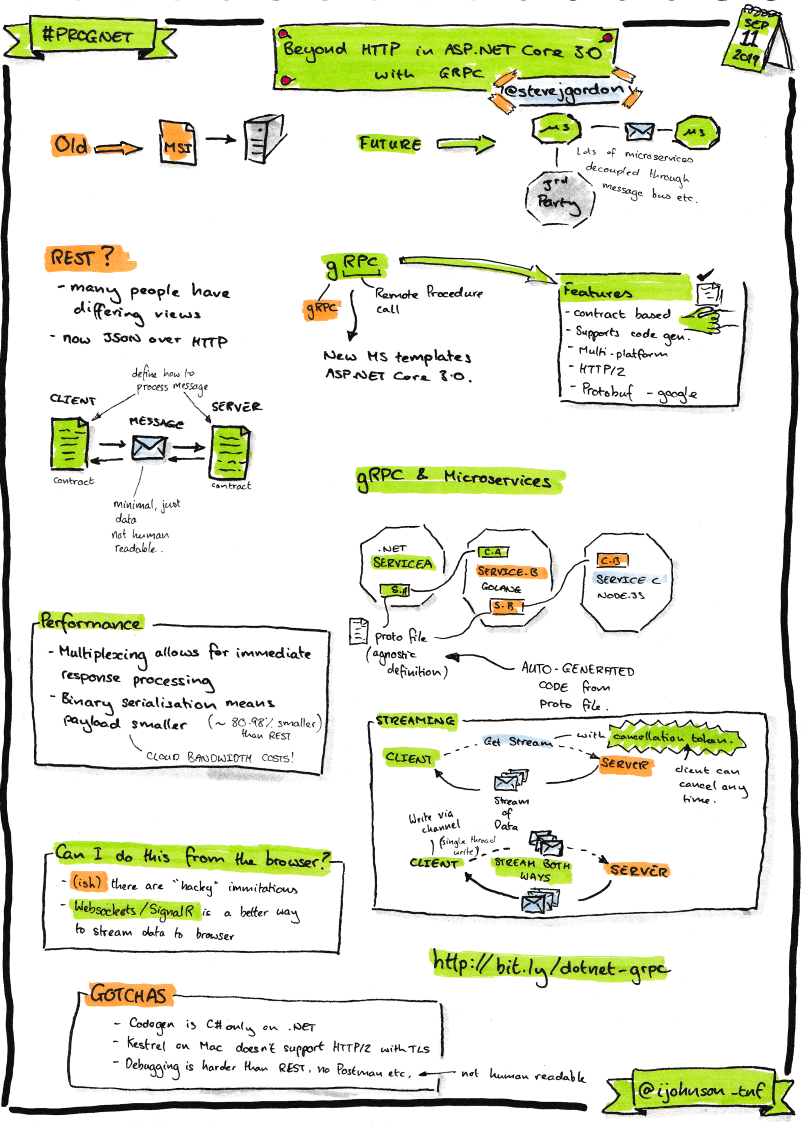 #PROGNET
Beyond HTTP in ASP.NET Core 3.0
with GRPC
@stevejgordon
SEP
11
2019
Old
MSI
FUTURE
MS
MS
3rd
Party
Lots of microservices
decoupled through
message bus etc.
REST?
- many people have
differing views
- now JSON over HTTP
gRPC
gRPC
Remote Procedure
call
New MS templates
ASP.NET Core 3.0.
Features
- contract based
- Supports code gen.
- Multi-platform
- HTTP/2
- Protobuf - google
define how to
process message
CLIENT
MESSAGE
SERVER
contract
contract
minimal, just
data
not human
readable.
gRPC & Microservices
.NET
SERVICE A
S.A
C.A
SERVICE.B
GOLANG
S.B.
C-B
SERVICE C
NODE.JS
proto file
(agnostic
definition)
AUTO-GENERATED
CODE from
proto file.
Performance
- Multiplexing allows for immediate
response processing
- Binary serialisation means
payload smaller (~ 80.98% smaller)
than REST
CLOUD BANDWIDTH COSTS!
STREAMING
CLIENT
Get Stream
with cancellation token.
SERVER
client can
cancel any
time.
Stream
of
Data
Write via
channel
(single thread
write)
CLIENT
STREAM BOTH
WAYS
SERVER
Can I do this from the browser?
- (ish) there are "hacky" immitations
- Websockets/SignalR is a better way
to stream data to browser
http://bit.ly/dotnet-grpc
GOTCHAS
- Codegen is C# only on .NET
- Kestrel on Mac doesn't support HTTP/2 with TLS
- Debugging is harder than REST, no Postman etc.
not human readable
@ijohnson_tnf